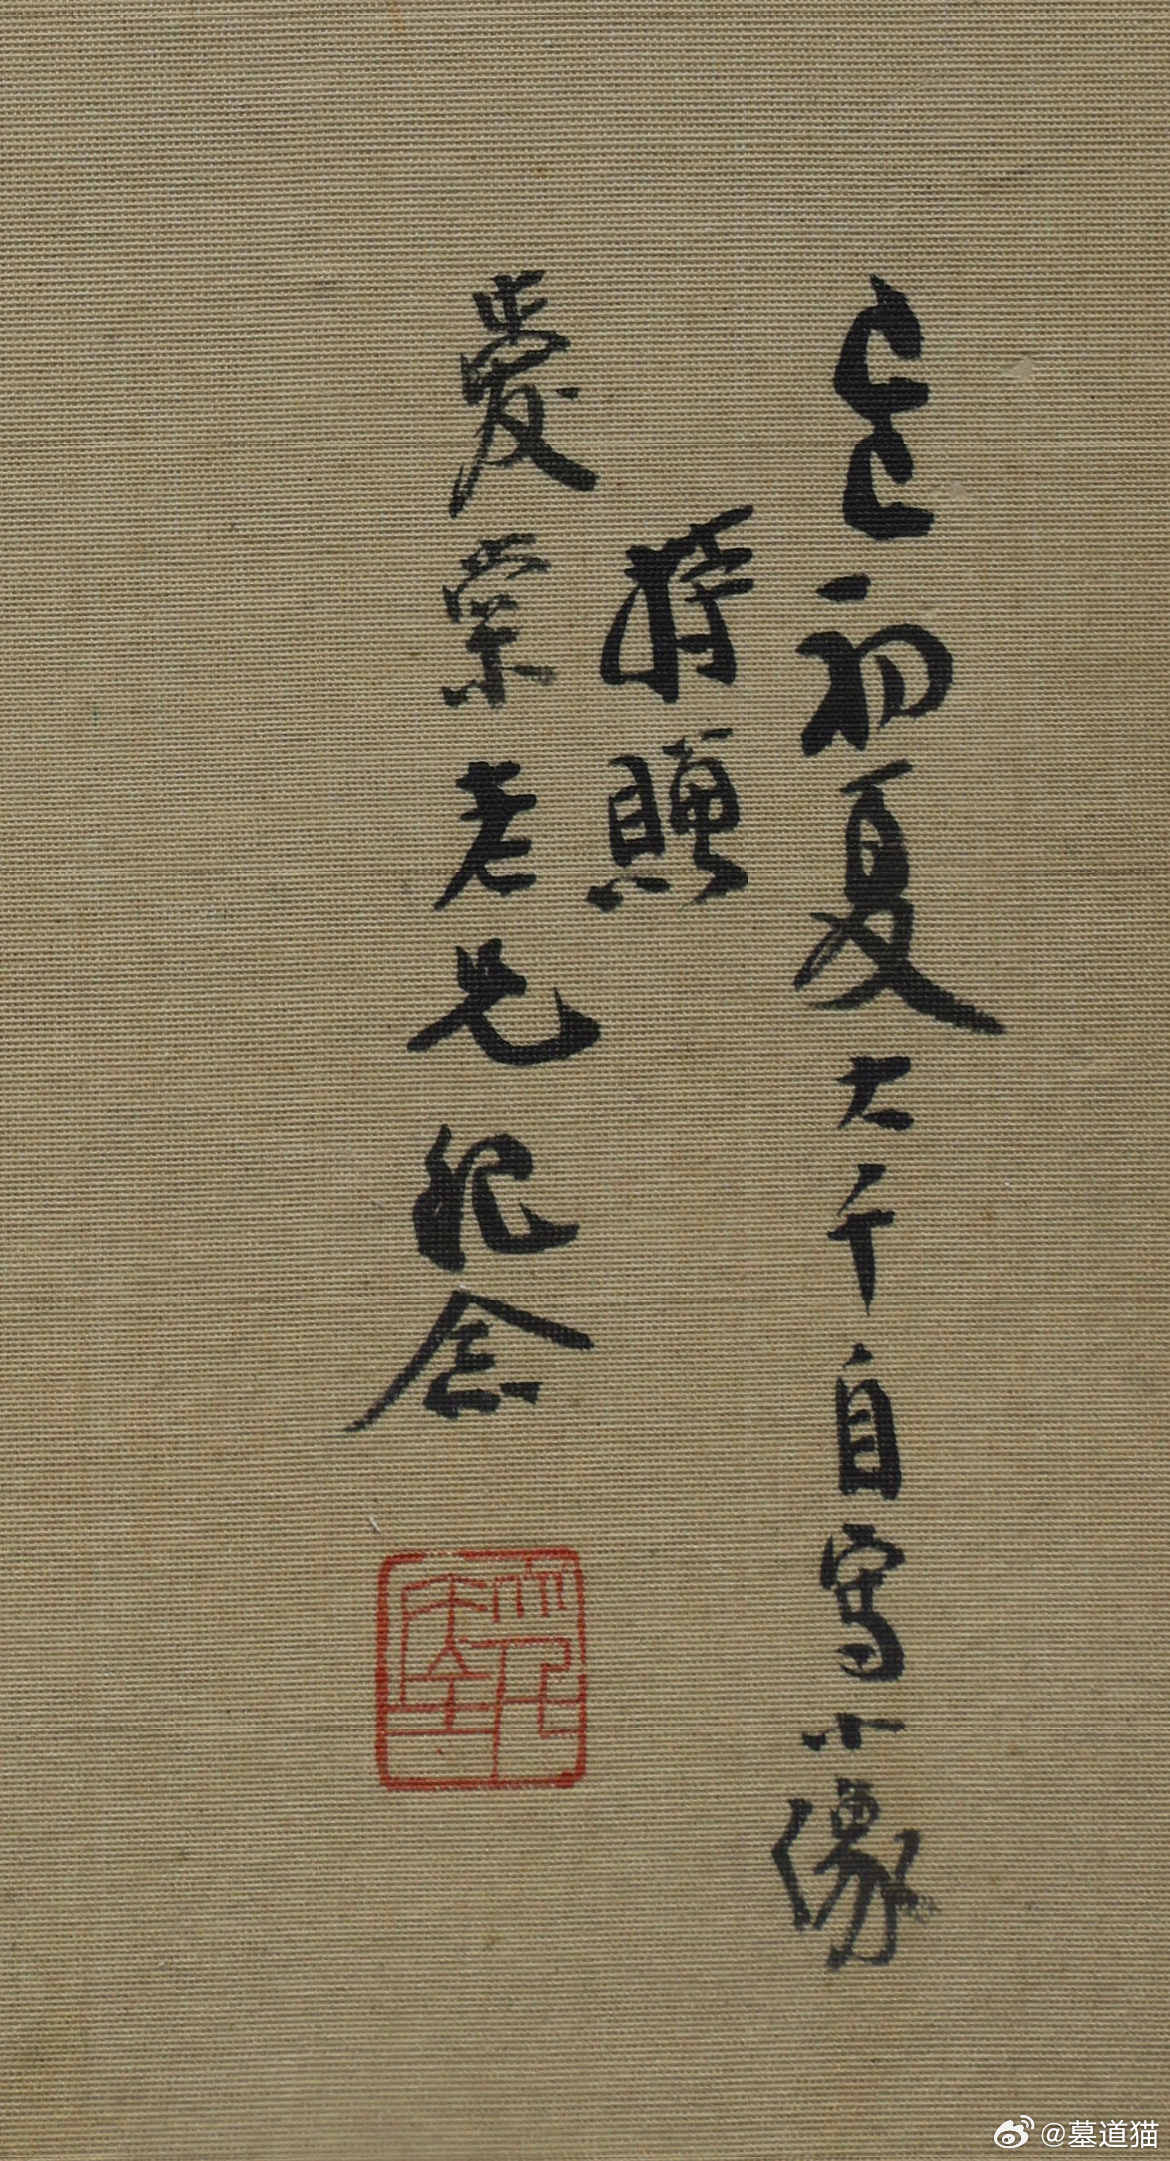 初夏大千自寫小像
持贈
愛棠老兄紀念
@墓道猫